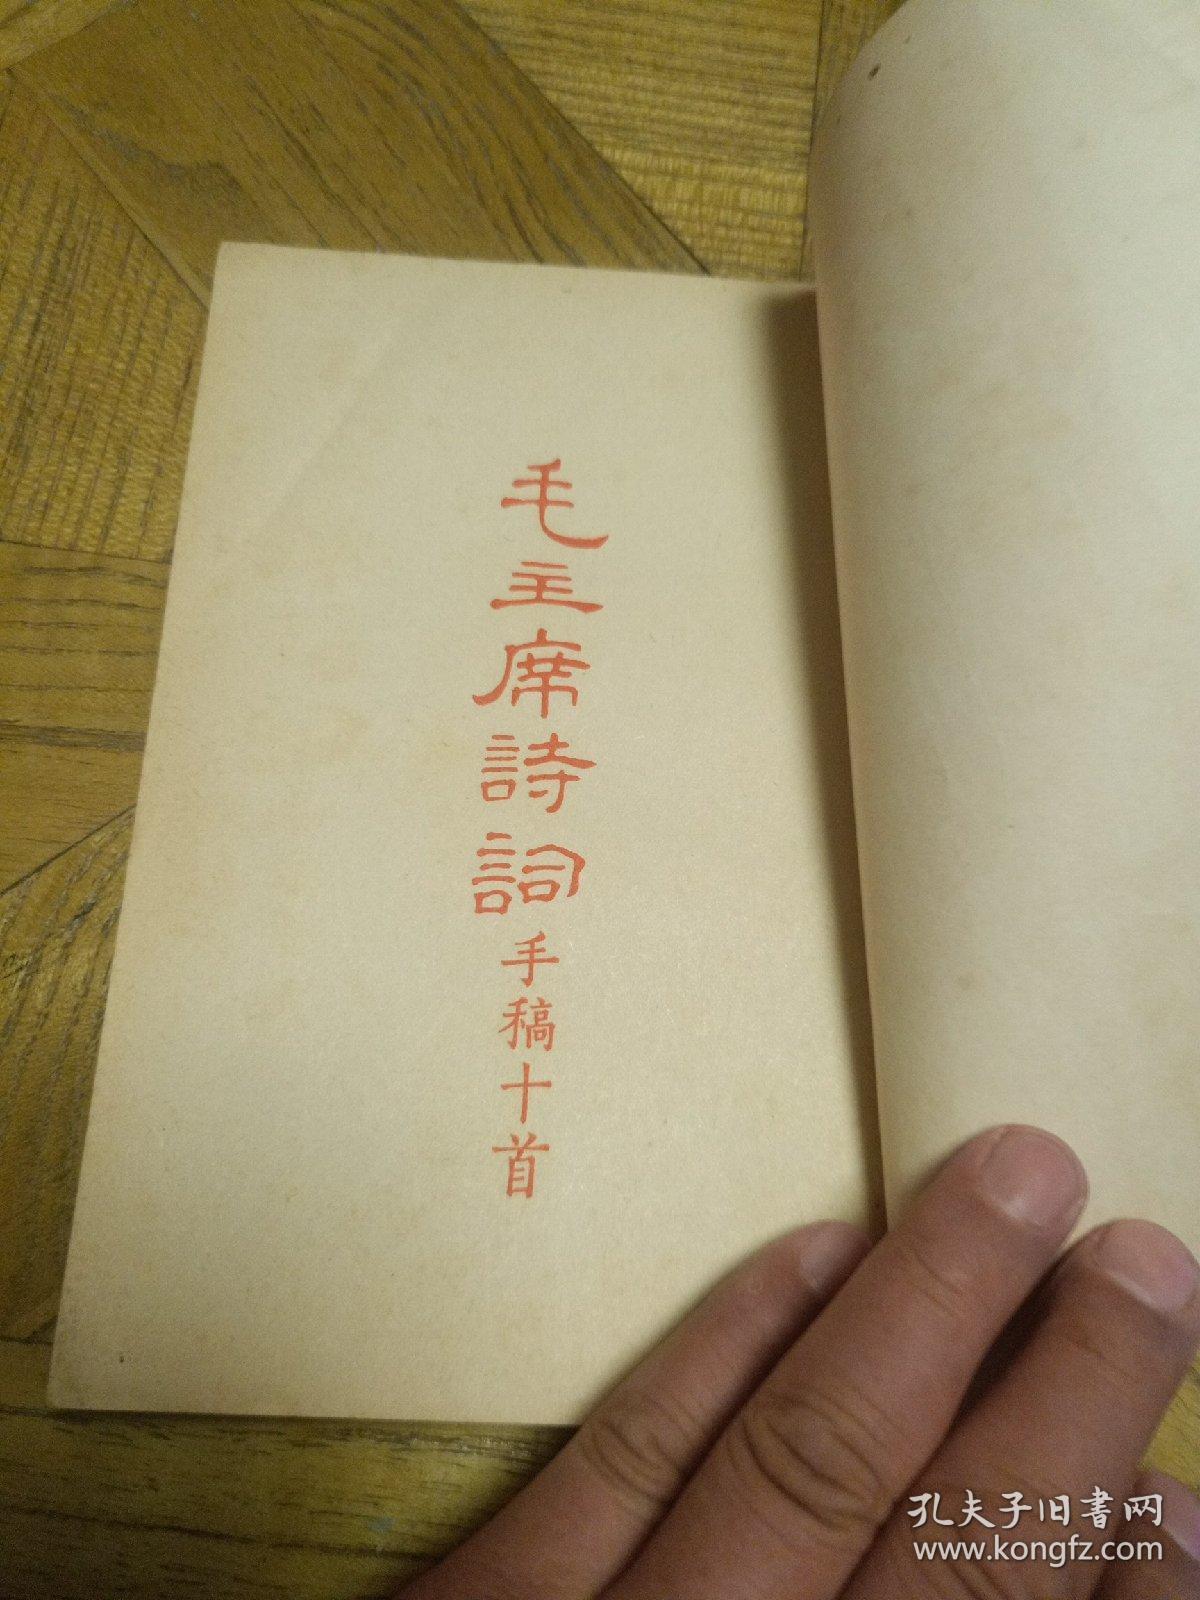 毛主席詩詞手稿十首
孔夫子旧書网
www.kongfz.com